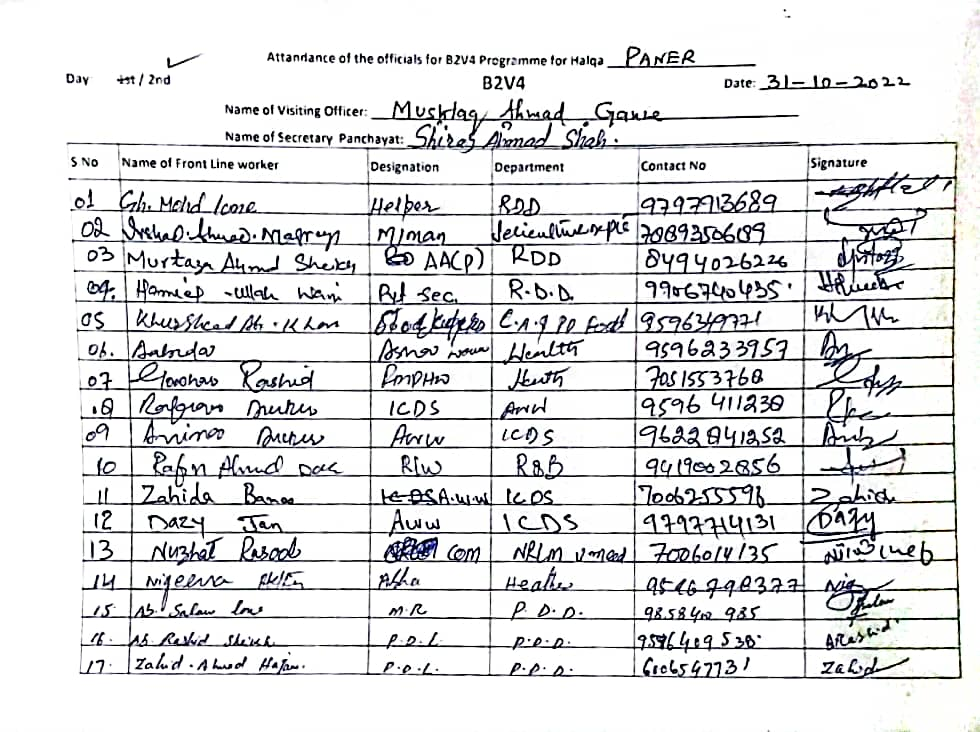 Attandance of the officials for B2V4 Programme for Halqa PANER
Day 1st / 2nd B2V4 Date: 31-10-2022
Name of Visiting Officer: Mushtaq Ahmad Ganie
Name of Secretary Panchayat: Shiraz Ahmad Shah.
S No Name of Front Line worker Designation Department Contact No Signature
01 Gh. Mohd Lone Helper RDD 9797913689
02 Irshad. Ahmad. M/man Sericulture 7889350689
03 Murtaza Ahmd Sheikh AA(P) RDD 8494026226
04. -ullah Wani Pyt Sec. R.D.D. 9906740435.
05 Khurshead Ah. Khan 9596349771
06. Health 9596233957
07 Rashid FMPHW Health 7051553768
08 ICDS AWW 9596 411238
09 AWW ICDS 9622841252
10 Ahmd Dar R/W R&B 9419002856
11 Zahida Banoo A.W.W ICDS 7006255596 Zahida
12 Dazy Jan AWW ICDS 9797714131 Dazy
13 Nuzhat Rasool Com NRLM Umeed 7006014135
14 Nigeena Asha Health 9546798377
15. Ab. Salam Lone M.R P.D.D. 9858400 985
16. Ab. Rashid Sheikh P.D.L. P.D.D. 9596409538. ARashid
17. Zahid. Ahmed Hajam. P.D.L. P.D.D. 6006547731 Zahid